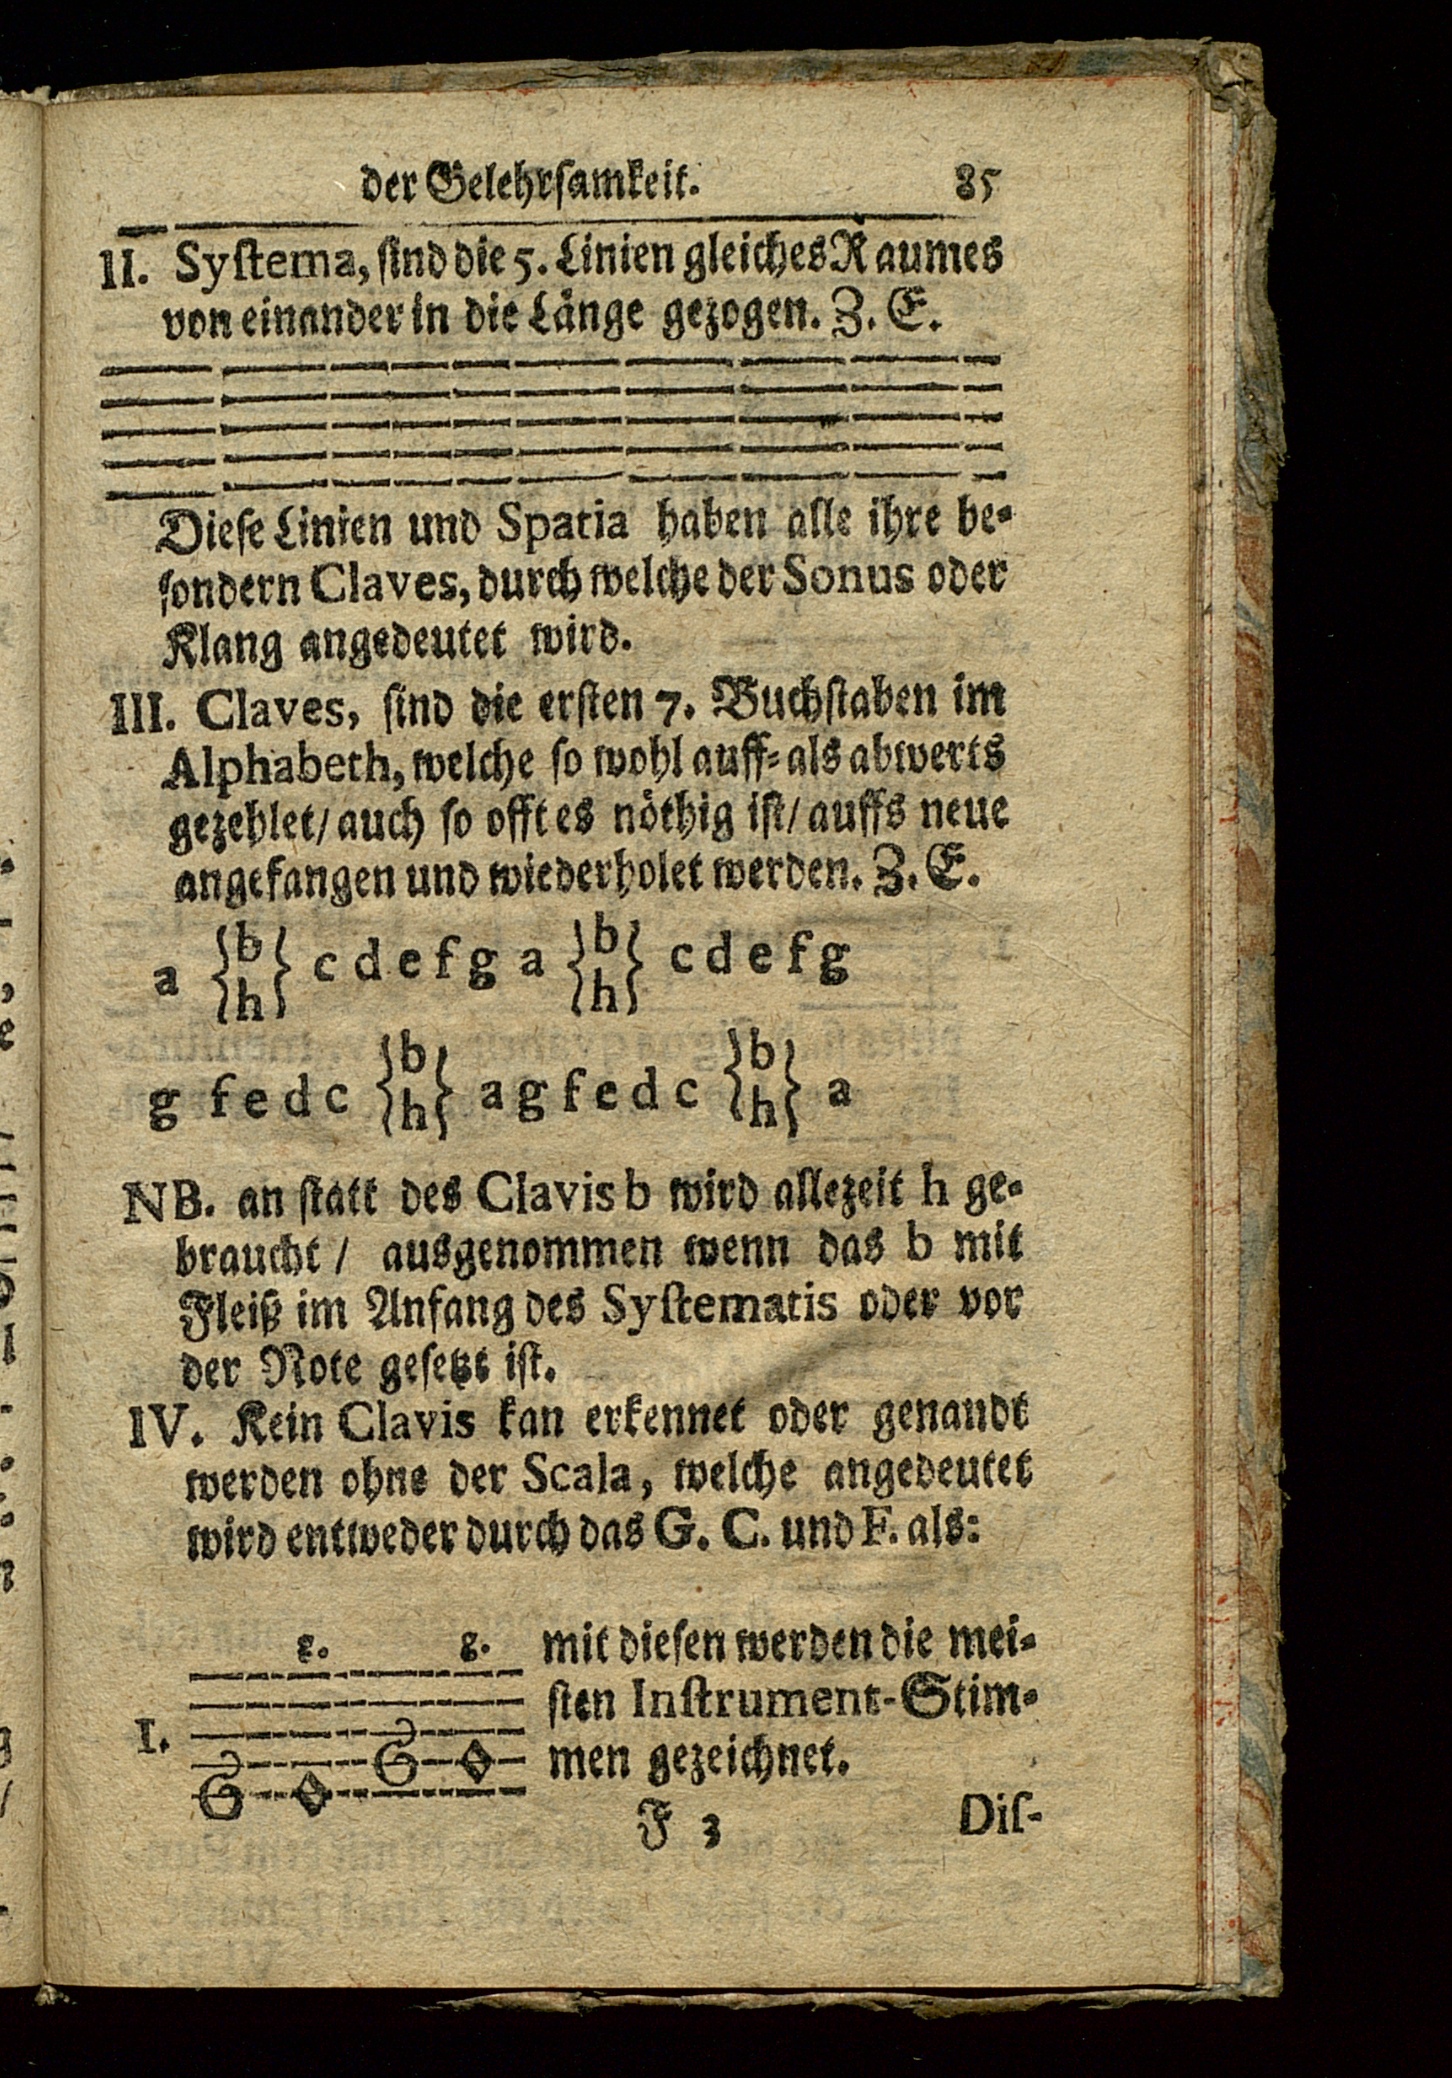 der Gelehrsamkeit. 85
II. Systema, sind die 5. Linien gleiches Raumes
von einander in die Länge gezogen. Z. E.
Diese Linien und Spatia haben alle ihre be-
sondern Claves, durch welche der Sonus oder
Klang angedeutet wird.
III. Claves, sind die ersten 7. Buchstaben im
Alphabeth, welche so wohl auff- als abwerts
gezehlet / auch so offt es nöthig ist / auffs neue
angefangen und wiederholet werden. Z. E.
a {b h} c d e f g a {b h} c d e f g
g f e d c {b h} a g f e d c {b h} a
NB. an statt des Clavis b wird allezeit h ge-
braucht / ausgenommen wenn das b mit
Fleiß im Anfang des Systematis oder vor
der Note gesetzt ist.
IV. Kein Clavis kan erkennet oder genandt
werden ohne der Scala, welche angedeutet
wird entweder durch das G. C. und F. als:
g. g.
I.
G G
mit diesen werden die mei-
sten Instrument-Stim-
men gezeichnet.
F 3 Dis-